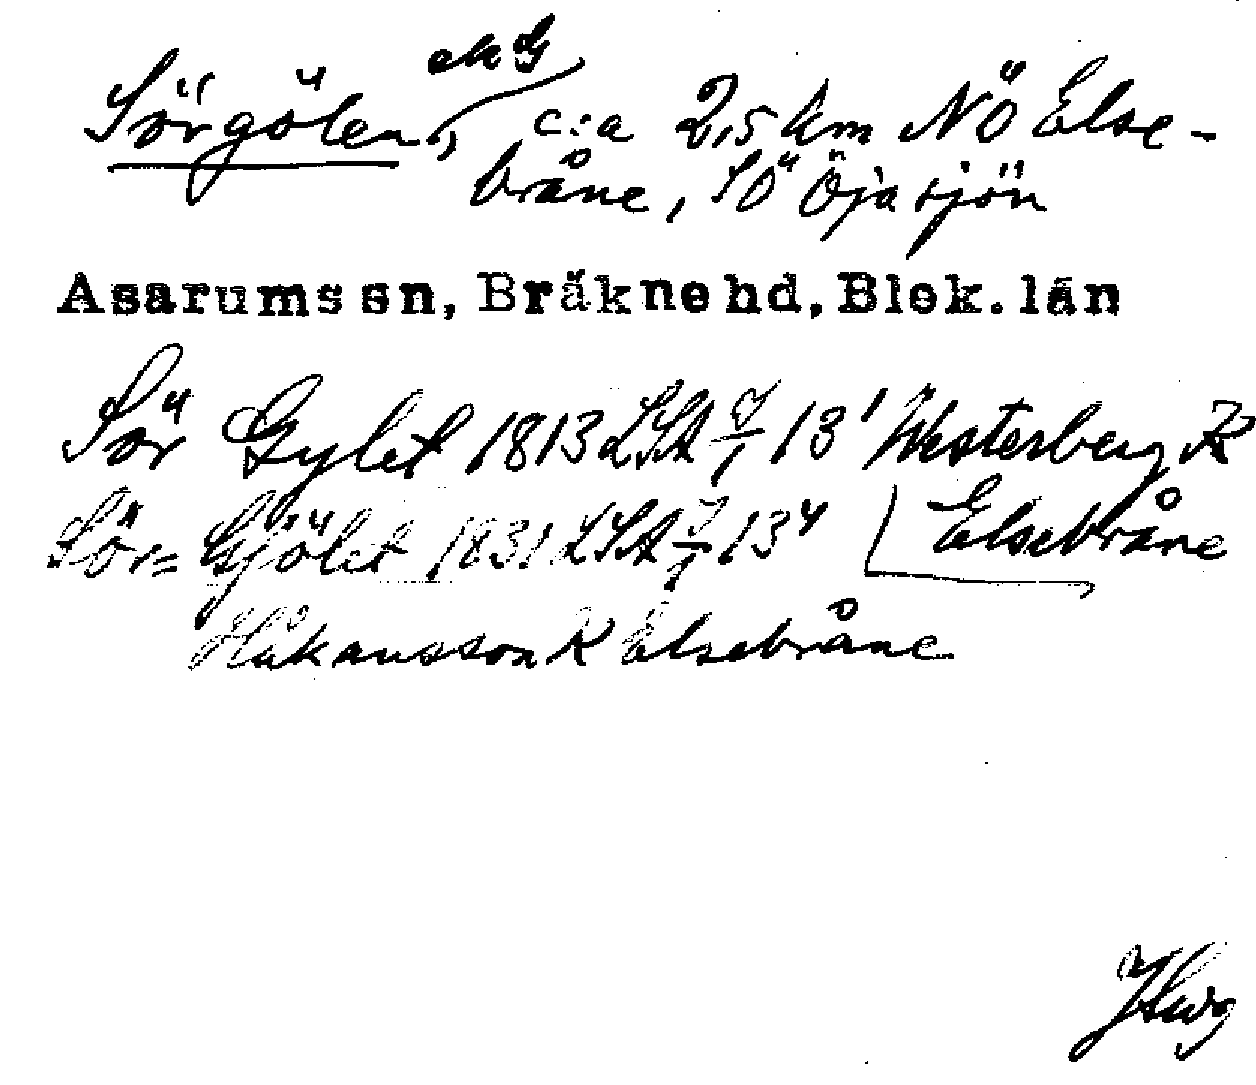 ek G
Sörgölen, c:a 2,5 km NÖ Else-
bråne, SÖ Öjasjön
Asarums sn, Bräkne hd, Blek. län
Sör Gylet 1813 LSA 7/1 13' Westerberg K
Elsebråne
Sör= Gjölet 1831 LSA 7/1 134
Håkansson K Elsebråne